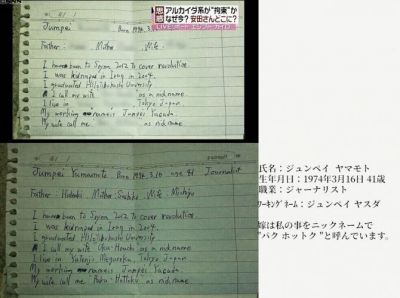 アルカイダ系が"拘束"か
なぜ今? 安田さんどこに?
LIVE
Jumpei Born 1974. 3.16
Father Mother Wife
I have been to Syria 2012 to cover revolution
I was kednaped in Iraq in 2004.
I graduated Hitotsubashi University
I call my wife as nickname
I live in Tokyo Japan
My working name is Jumpei Yasuda
My wife call me as nickname.
Jumpei Yamamoto Born 1974. 3.16 age 41 Journalist
Father Hideaki Mother Sachiko Wife
I have been to Syria 2012 to cover revolution
I was kednaped in Iraq in 2004.
I graduated Hitotsubashi University
I call my wife as a nickname
I live in Tokyo, Japan
My working name is Jumpei Yasuda.
My wife call me Paku-Hottoku as nickname
氏名：ジュンペイ ヤマモト
生年月日：1974年3月16日 41歳
職業：ジャーナリスト
ﾜｰｷﾝｸﾞﾈｰﾑ：ジュンペイ ヤスダ
嫁は私の事をニックネームで
"パク ホットク"と呼んでいます。